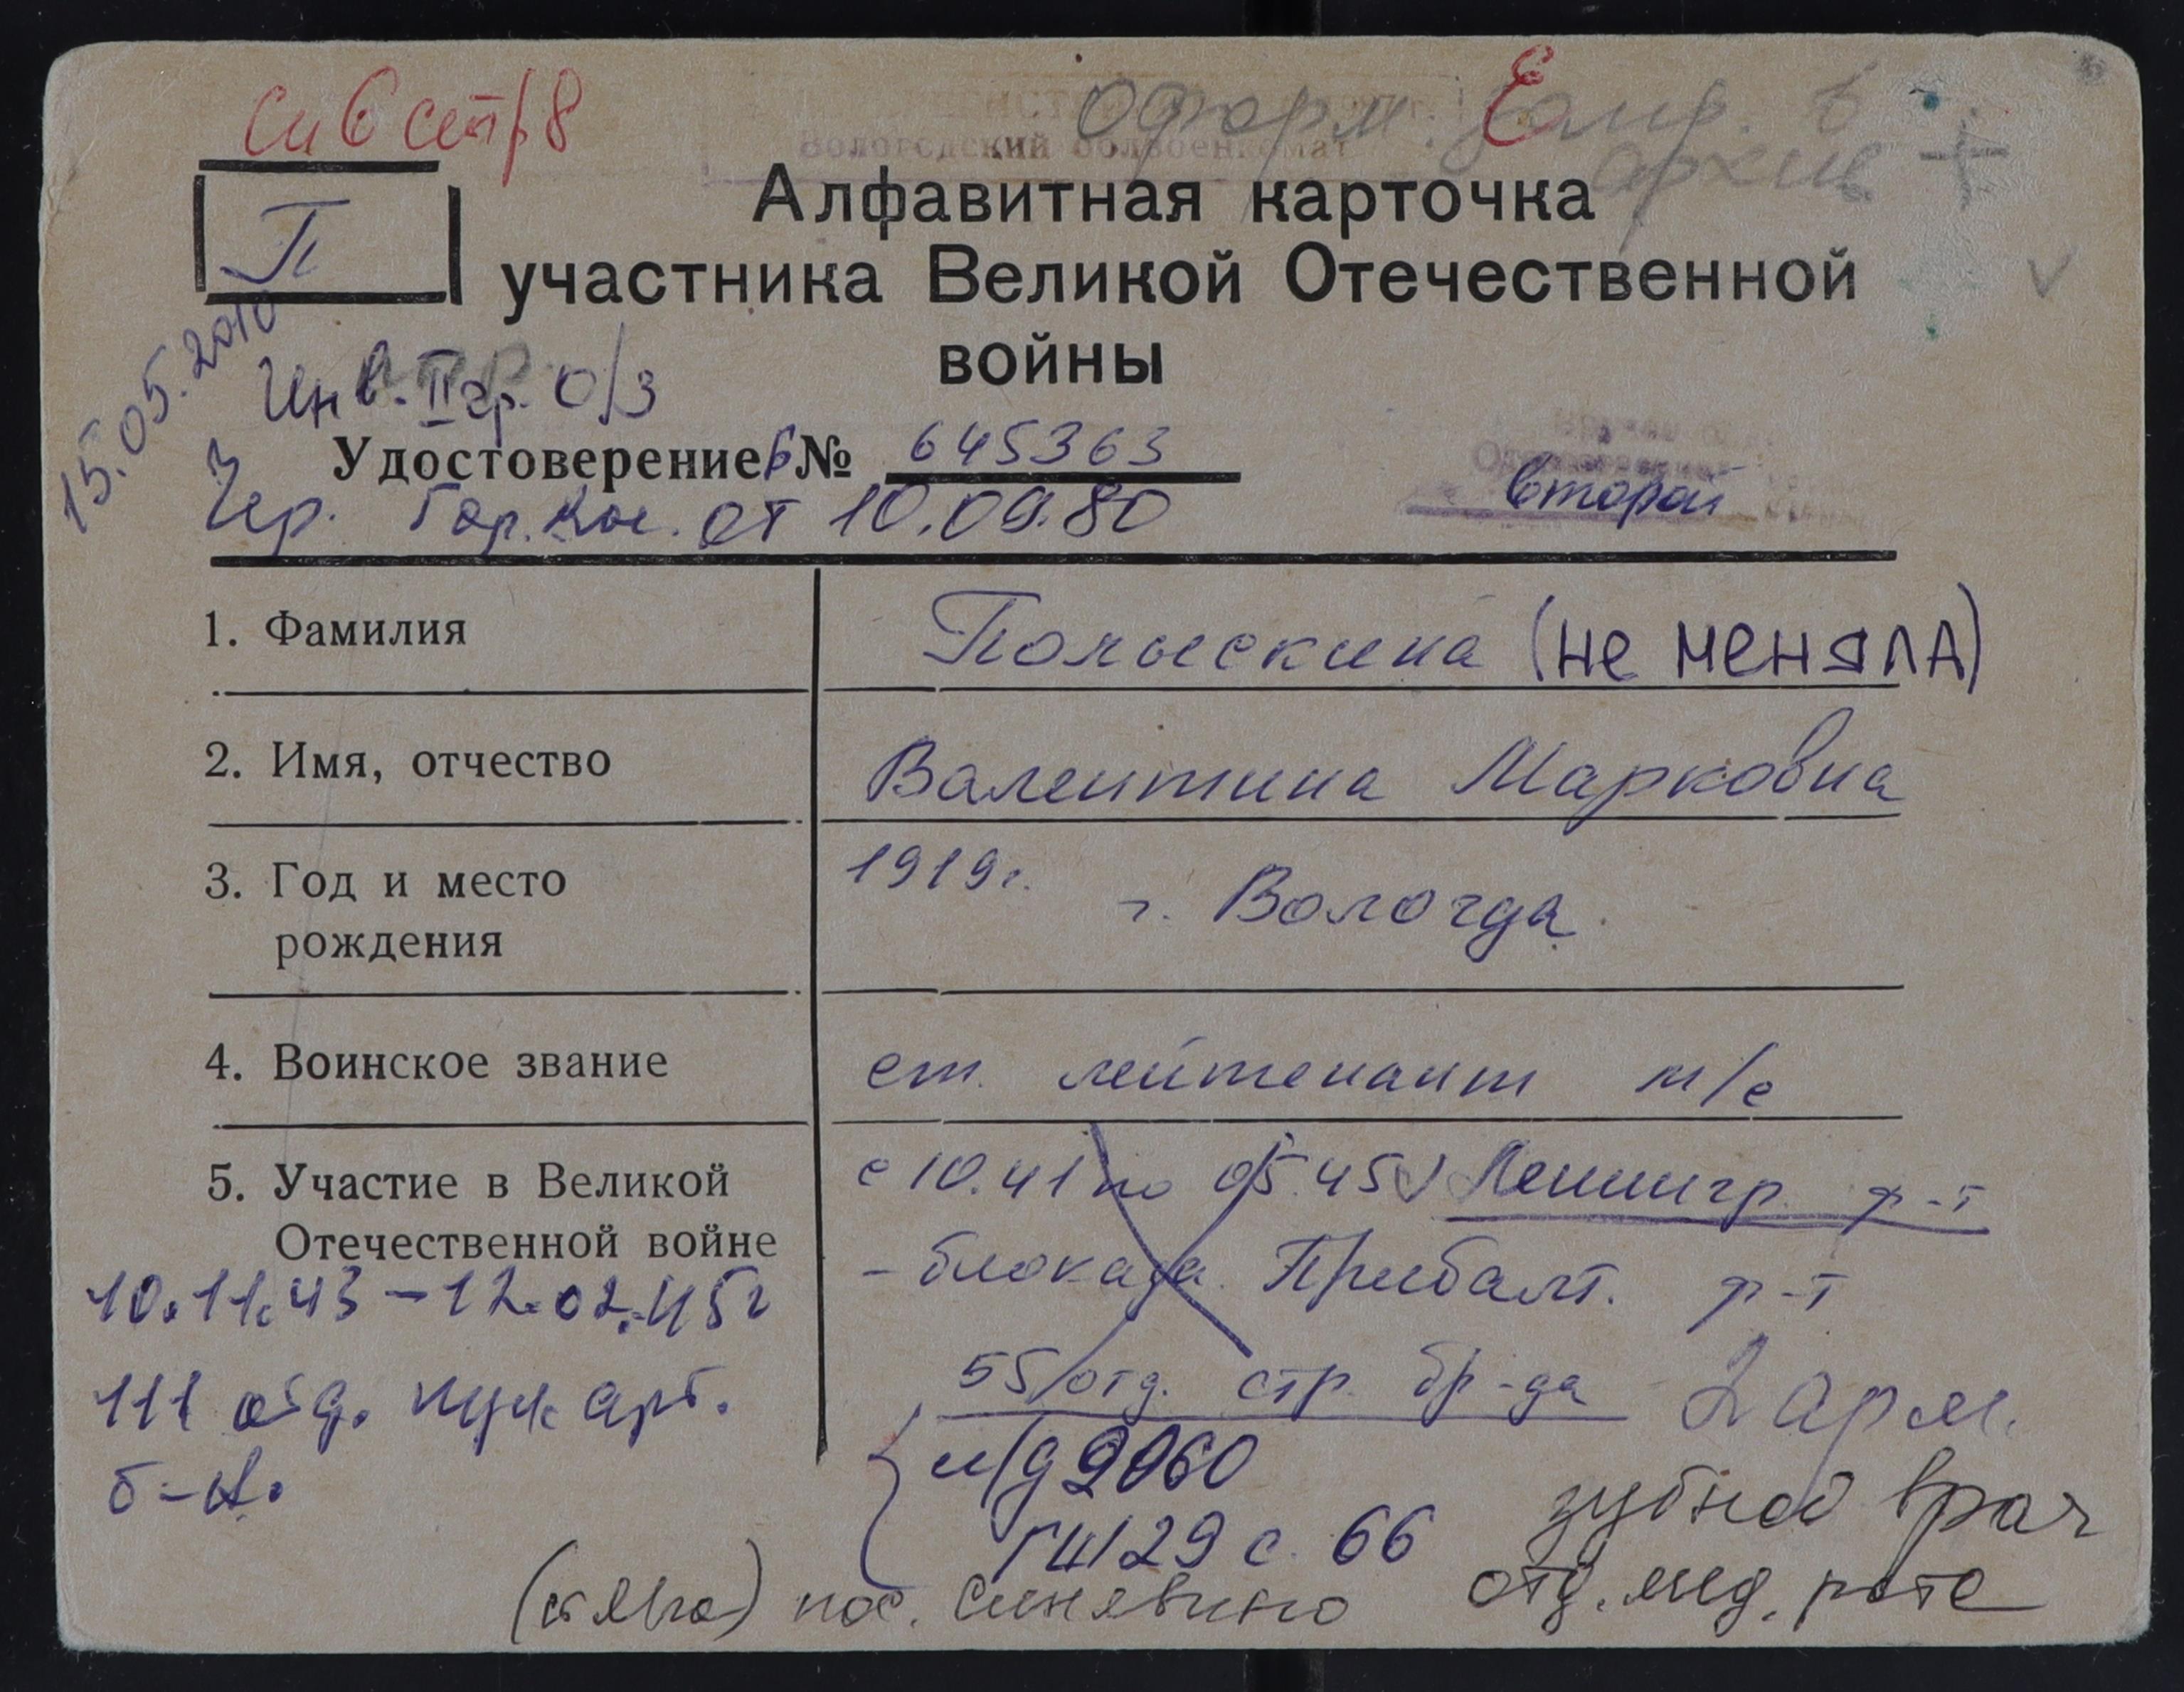 сп 6 стр 8
Оформ. в архив
Вологодский облвоенкомат
Е
П
Алфавитная карточка
участника Великой Отечественной
войны
15.05.2010
Инв. II гр. о/з
Удостоверение Б № 645363
Гор. Ком. от 10.09.80
второй
1. Фамилия
Полыскина (не меняла)
2. Имя, отчество
Валентина Марковна
3. Год и место
рождения
1919г. г. Вологда.
4. Воинское звание
ст. лейтенант м/с
5. Участие в Великой
Отечественной войне
с 10.41 по 05.45 Ленингр. ф-т
- блокада. Прибалт. ф-т
55 отд. стр. бр-да 2 арм.
10.11.43 - 12.02.45г
111 отд. пул. арт.
б-н.
и/д 9060
ГШ 129 с. 66
зубной врач
отд. мед. роте
пос. Синявино